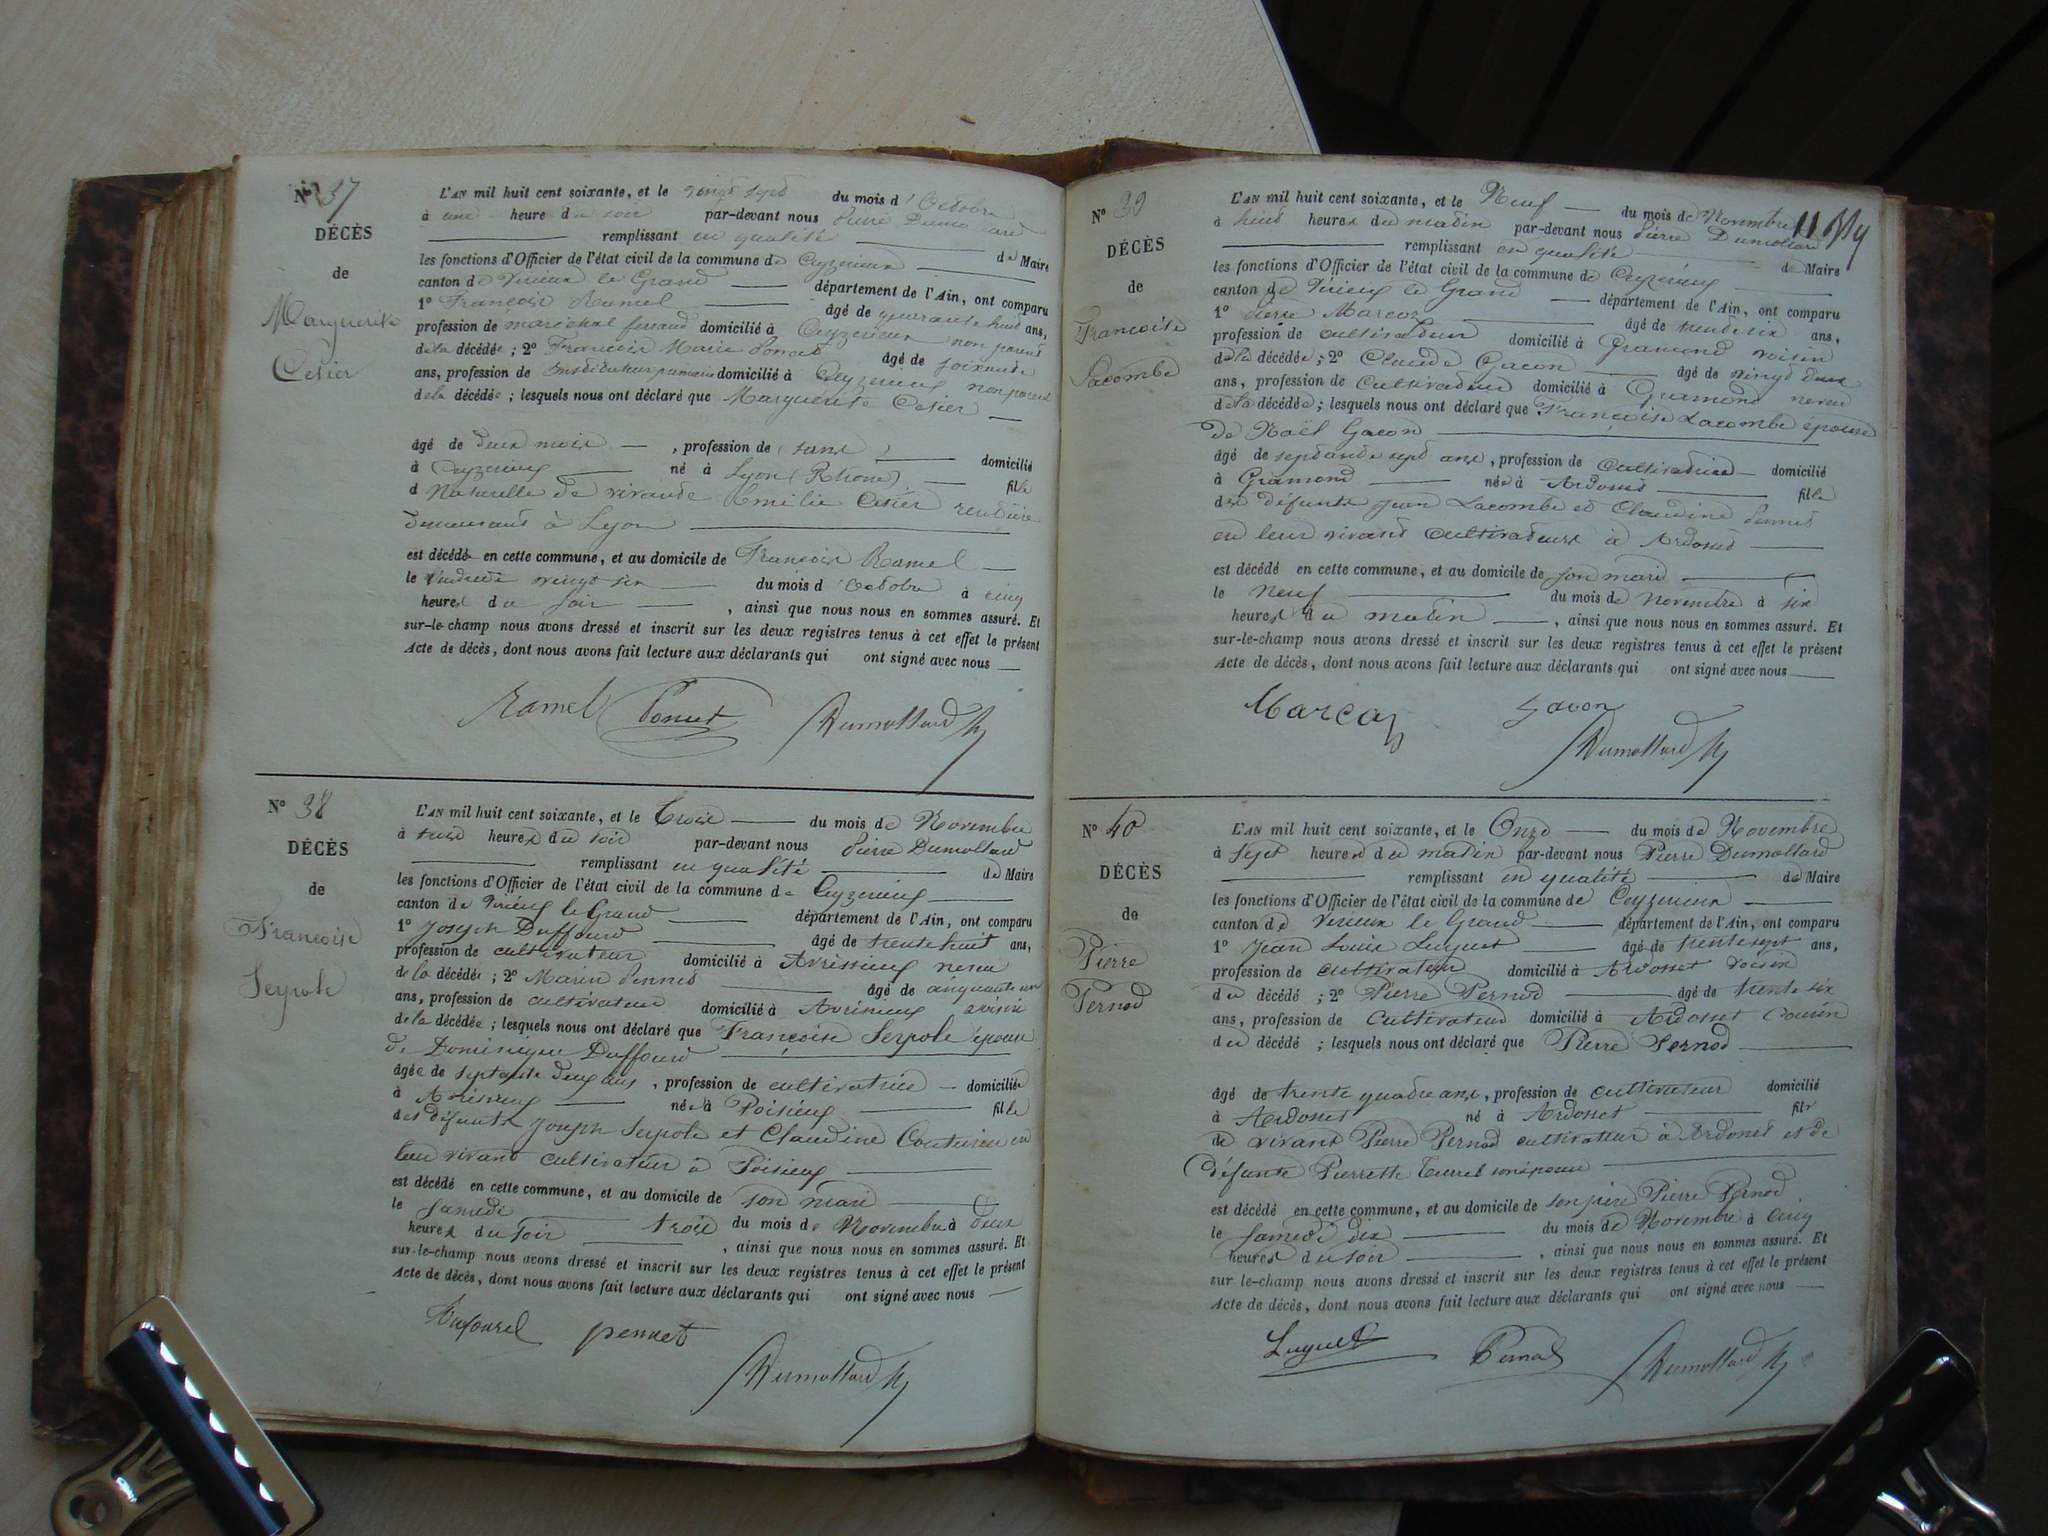 N° 37
DÉCÈS
de
Marguerite
Cetier
L'AN mil huit cent soixante, et le vingt sept du mois d'Octobre
à une heure du soir par-devant nous Pierre Dumollard
remplissant en qualité de Maire
les fonctions d'Officier de l'état civil de la commune de Ceyzerieux
canton de Virieux le Grand département de l'Ain, ont comparu
1° François Ramel âgé de quarante huit ans,
profession de maréchal ferrand domicilié à Ceyzerieux non parent
de la décédée ; 2° François Marie Poncet âgé de soixante
ans, profession de Instituteur primaire domicilié à Ceyzerieux non parent
de la décédée ; lesquels nous ont déclaré que Marguerite Cetier
âgé de deux mois , profession de (sans) domicilié
à Ceyzerieux né à Lyon (Rhone) fille
d Naturelle de vivante Emélie Cetier rentière
demeurant à Lyon
est décédé en cette commune, et au domicile de François Ramel
le Vendredi vingt six du mois d'Octobre à cinq
heures du soir , ainsi que nous nous en sommes assuré. Et
sur-le-champ nous avons dressé et inscrit sur les deux registres tenus à cet effet le présent
Acte de décès, dont nous avons fait lecture aux déclarants qui ont signé avec nous
Ramel Poncet Dumollard
N° 38
DÉCÈS
de
Françoise
Serpole
L'AN mil huit cent soixante, et le Trois du mois de Novembre
à heures du soir par-devant nous Pierre Dumollard
remplissant en qualité de Maire
les fonctions d'Officier de l'état civil de la commune de Ceyzerieux
canton de Virieux le Grand département de l'Ain, ont comparu
1° Joseph Duffourd âgé de trente huit ans,
profession de cultivateur domicilié à Avrissieux neveu
de la décédée ; 2° Marin Pennet âgé de cinquante un
ans, profession de cultivateur domicilié à Avrissieux voisin
de la décédée ; lesquels nous ont déclaré que Françoise Serpole épouse
de Dominique Duffourd
âgée de septante deux ans , profession de cultivatrice domiciliée
à Avrissieux née à Poisieux fille
des défunts Joseph Serpole et Claudine Couturieu en
leur vivant cultivateur à Poisieux
est décédé en cette commune, et au domicile de son mari
le samedi trois du mois de Novembre à deux
heures du soir , ainsi que nous nous en sommes assuré. Et
sur-le-champ nous avons dressé et inscrit sur les deux registres tenus à cet effet le présent
Acte de décès, dont nous avons fait lecture aux déclarants qui ont signé avec nous
pennet Dumollard
N° 39
DÉCÈS
de
Françoise
Lacombe
L'AN mil huit cent soixante, et le Neuf du mois de Novembre
à huit heures du matin par-devant nous Pierre Dumollard
remplissant en qualité de Maire
les fonctions d'Officier de l'état civil de la commune de Ceyzerieux
canton de Virieux le Grand département de l'Ain, ont comparu
1° Pierre Marcoz âgé de trente six ans,
profession de cultivateur domicilié à Gramond voisin
de la décédée ; 2° Claude Gacon âgé de vingt deux
ans, profession de Cultivateur domicilié à Gramond neveu
de la décédée ; lesquels nous ont déclaré que Françoise Lacombe épouse
de Noël Gacon
âgé de septante sept ans , profession de Cultivatrice domicilié
à Gramond née à Ardosset fille
des défunts Jean Lacombe et Claudine Pennet
en leur vivant cultivateurs à Ardosset
est décédé en cette commune, et au domicile de son mari
le Neuf du mois de Novembre à six
heures du matin , ainsi que nous nous en sommes assuré. Et
sur-le-champ nous avons dressé et inscrit sur les deux registres tenus à cet effet le présent
Acte de décès, dont nous avons fait lecture aux déclarants qui ont signé avec nous
Marcoz Gacon
Dumollard
N° 40
DÉCÈS
de
Pierre
Pernod
L'AN mil huit cent soixante, et le Onze du mois de Novembre
à Sept heures du matin par-devant nous Pierre Dumollard
remplissant en qualité de Maire
les fonctions d'Officier de l'état civil de la commune de Ceyzerieux
canton de Virieux le Grand département de l'Ain, ont comparu
1° Jean Louis Luquet âgé de trente sept ans,
profession de cultivateur domicilié à Ardosset voisin
du décédé ; 2° Pierre Pernod âgé de trente six
ans, profession de Cultivateur domicilié à Ardosset Cousin
du décédé ; lesquels nous ont déclaré que Pierre Pernod
âgé de trente quatre ans , profession de cultivateur domicilié
à Ardosset né à Ardosset fils
de vivant Pierre Pernod cultivateur à Ardosset et de
défunte Pierrette Turrel son épouse
est décédé en cette commune, et au domicile de son père Pierre Pernod
le samedi dix du mois de Novembre à cinq
heures du soir , ainsi que nous nous en sommes assuré. Et
sur le-champ nous avons dressé et inscrit sur les deux registres tenus à cet effet le présent
Acte de décès, dont nous avons fait lecture aux déclarants qui ont signé avec nous
Luquet Pernod Dumollard